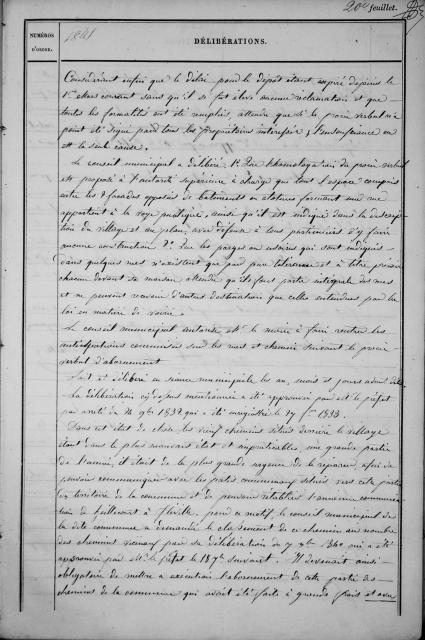 20e feuillet.
NUMÉROS
D'ORDRE.
1841
DÉLIBÉRATIONS.
Considérant enfin que le délai pour le dépôt étant expiré depuis le
1er mars courant sans qu'il se fut élevé aucune réclamation et que
toutes les formalités ont été remplies, attendu que si le procès verbal n'a
point été signé par tous les propriétaires intéressés, l'insouciance en
est la seule cause.
Le conseil municipal a délibéré 1° Que l'homologation du procès verbal
est proposé à l'autorité supérieure à charge que tout l'espace compris
entre les 2 façades opposées de batiments ou clotures formant une rue
appartient à la voye publique, ainsi qu'il est indiqué dans la descrip-
tion du village et au plan, avec défense à tous particuliers d'y faire
aucune construction 2° Que les parges ou usoires qui sont indiqués
dans quelques rues n'existent que par pure tolérance et à titre précaire
chacun devant sa maison attendu qu'ils font partie intégrale des rues
et ne peuvent recevoir d'autres destinations que celles entendues par la
loi en matière de voirie.
Le conseil municipal autorise Mr. le maire à faire rentrer les
anticipations commises sur les rues et chemins suivant le procès
verbal d'abornement
Fait et délibéré en séance municipale les an, mois et jours
La délibération cy dessus mentionnée a été approuvée par Mr le préfet
par arrêté du 14 9bre 1832 qui a été enregistré le 27 1833.
Dans cet état de chose les neuf chemins situés derrière le village
étant dans le plus mauvais état et impraticables, une grande partie
de l'année, il était de la plus grande urgence de le réparer, afin de
pouvoir communiquer avec les patis communaux situés vers cette partie
du territoire de la commune et de pouvoir rétablir l'ancienne communica-
tion de à Fléville, pour ce motif, le conseil municipal de
la dite commune a demandé le classement de ce chemin au nombre
des chemins vicinaux par sa délibération du 7 1840 qui a été
approuvée par Mr le préfet le 18 suivant. Il devenait ainsi
obligatoire de mettre à exécution l'abornement de cette partie des
chemins de la commune qui avait été faite à grands frais et avec